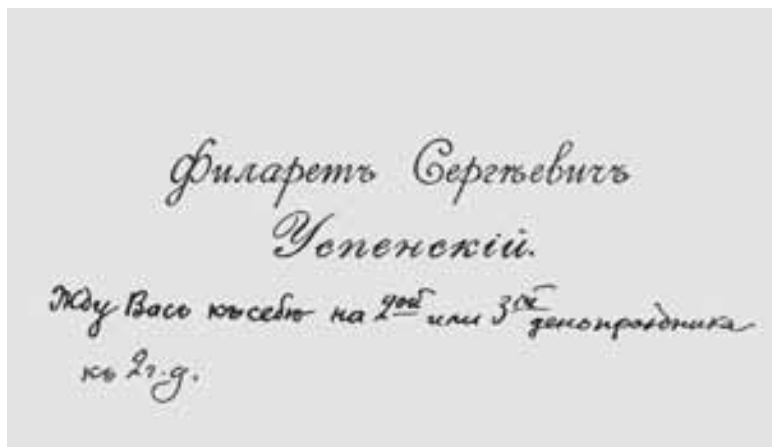 Филаретъ Сергѣевичъ
Успенскій.
Жду Васъ къ себѣ на 2ой или 3ій день праздника
къ 2 г. д.